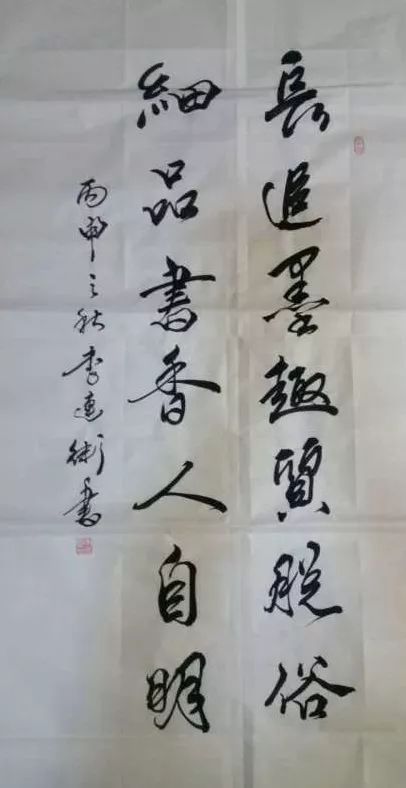 長追墨趣質脫俗
細品書香人自明
丙申之秋李連衛書